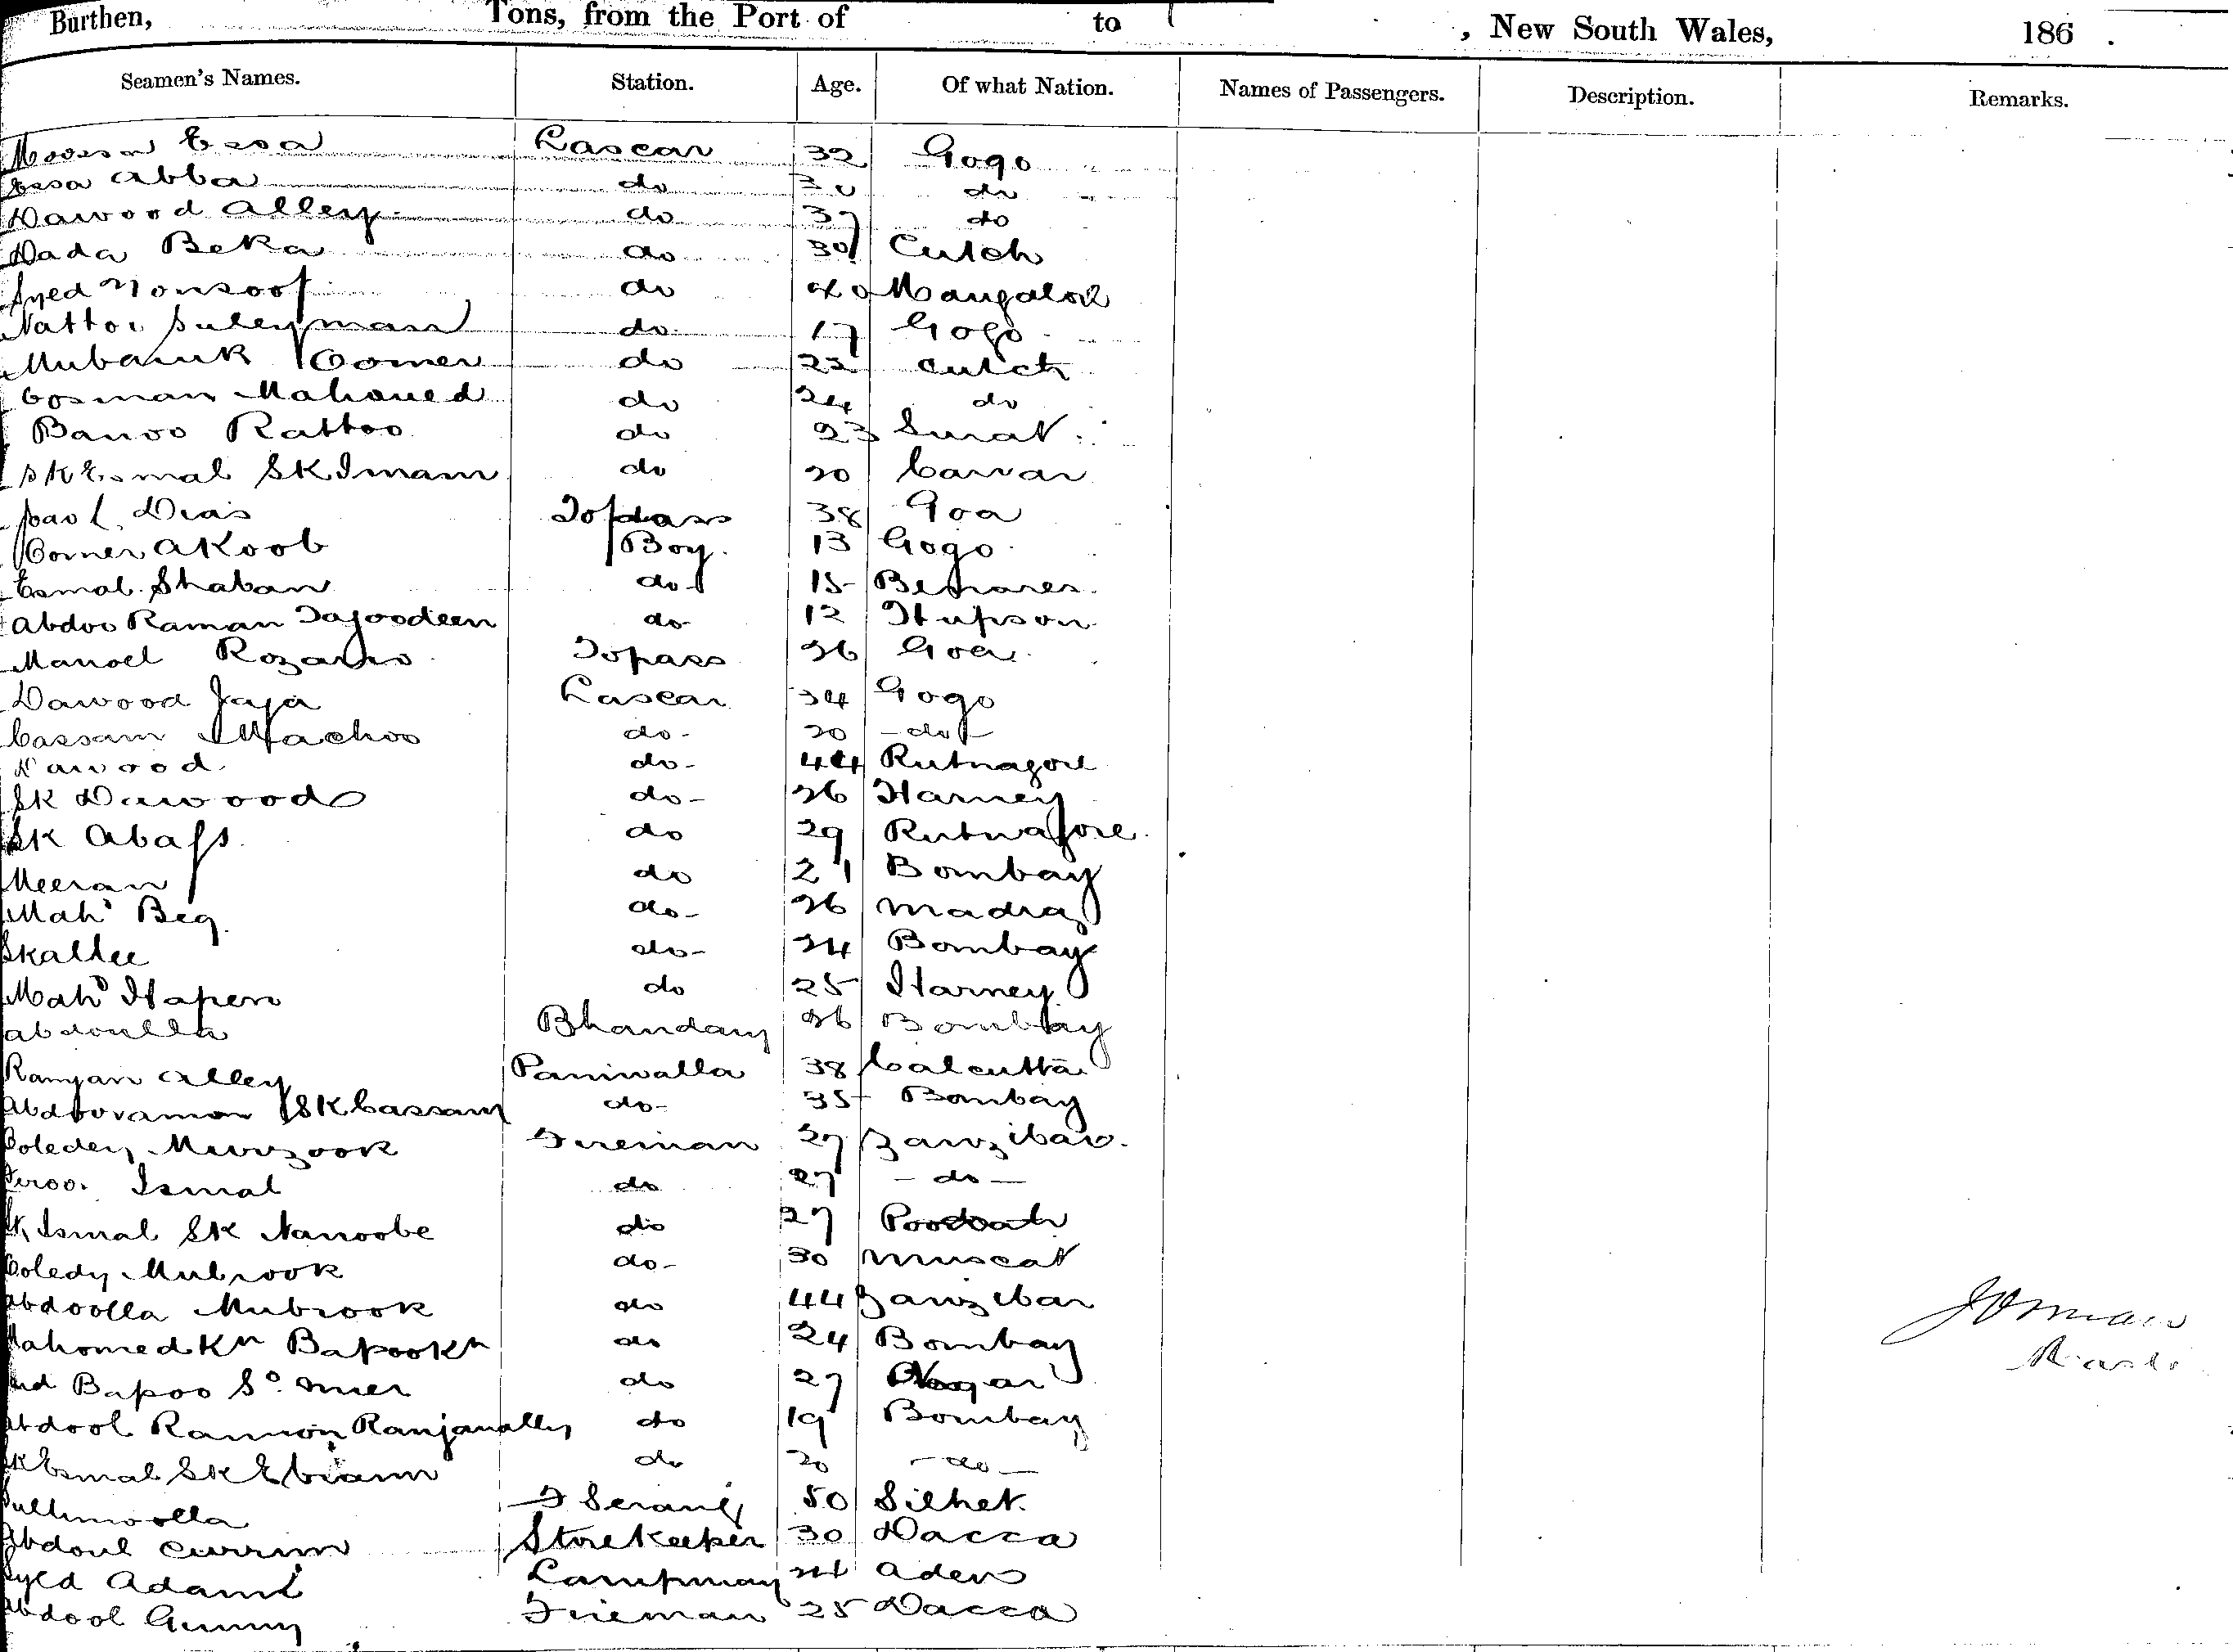 Burthen, Tons, from the Port of to , New South Wales, 186 .
Seamen's Names. Station. Age. Of what Nation. Names of Passengers. Description. Remarks.
Essa Lascar 32 Gogo
Essa Abba do 30 do
Dawood Alley do 37 do
Dada Beka do 30 Cutch
Syed do 40 Mangalore
Suleyman do 17 Gogo
Mubaruk Oomer do 22 Cutch
Oosman Mahomed do 24 do
Banoo Rattoo do 23 Surat
SK Esmal SK Imam do 20 Carwar
Dias Topass 38 Goa
Oomer Akoob Boy 13 Gogo
Esmal Shaban do 15
Abdoo Raman Tajoodeen do 12
Manoel Rozario Topass 26 Goa
Dawood Jaja Lascar 34 Gogo
Cassam do - 20 - do -
Dawood do - 44 Rutnagore
SK Dawood do - 26 Harney
SK Abass do 29 Rutnagore
Meeran do 21 Bombay
Mah'd Beg do - 26 Madras
Skallee do - 24 Bombay
Mah'd do 25 Harney
Abdoulla Bhandary 26 Bombay
Ramjan Alley Paniwalla 38 Calcutta
Abdooraman SK Cassam do - 35 Bombay
Murzook Fireman 27 Zanzibar
Feroo Ismal do 27 - do -
SK Ismal SK Nanoobe do 27
Mubrook do - 30 Muscat
Abdoolla Mubrook do 44 Zanzibar
Mahomed Kn Bapookn do 24 Bombay
Bapoo do 27
Abdool Ramon Ranjanally do 19 Bombay
SK Esmal SK Ebram do 20 - do -
F Serang 50 Silhet
Abdoul Currim Storekeeper 30 Dacca
Syed Adam Lampman 24 Aden
Abdool Gunny Fireman 25 Dacca